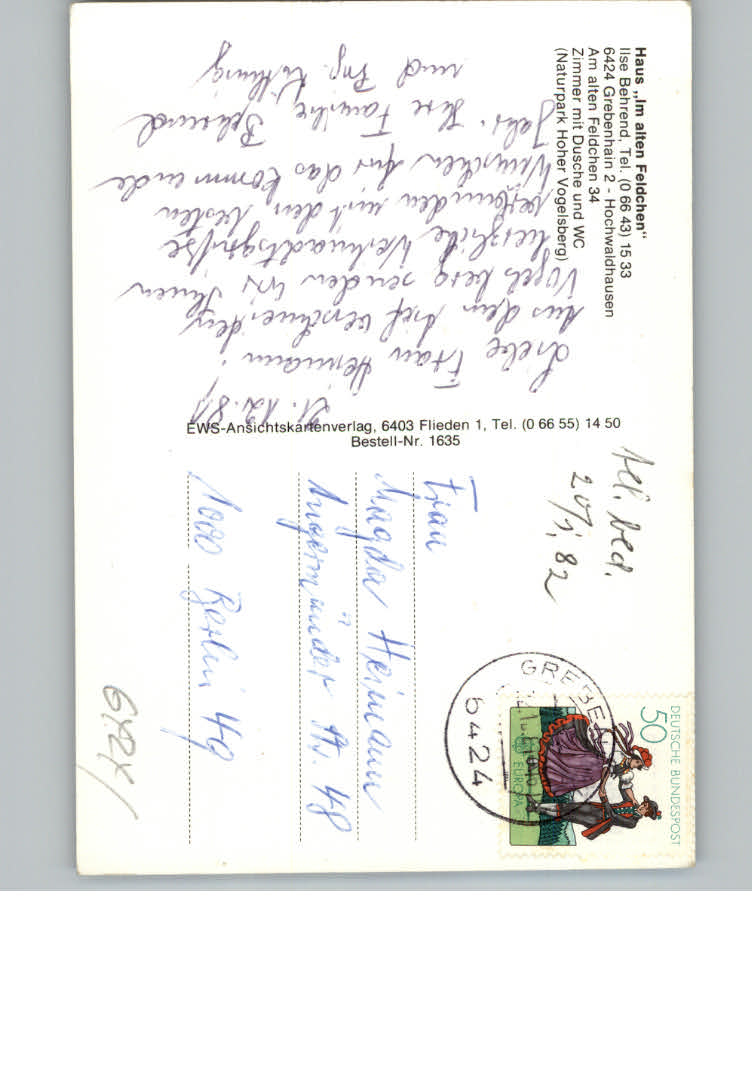 Haus „Im alten Feldchen"
Ilse Behrend, Tel. (0 66 43) 15 33
6424 Grebenhain 2 - Hochwaldhausen
Am alten Feldchen 34
Zimmer mit Dusche und WC
(Naturpark Hoher Vogelsberg)
21.12.81
Liebe Frau Heimann!
Aus dem tief verschneiten
Vogelsberg senden wir Ihnen
herzliche Weihnachtsgrüße
verbunden mit den besten
Wünschen für das kommende
Jahr. Ihre Familie Behrend
und
EWS-Ansichtskartenverlag, 6403 Flieden 1, Tel. (0 66 55) 14 50
Bestell-Nr. 1635
20/1. 82
DEUTSCHE BUNDESPOST
50
EUROPA
GREBE
6424
Frau
Magda Heimann
Angermünder Str. 48
1000 Berlin 49